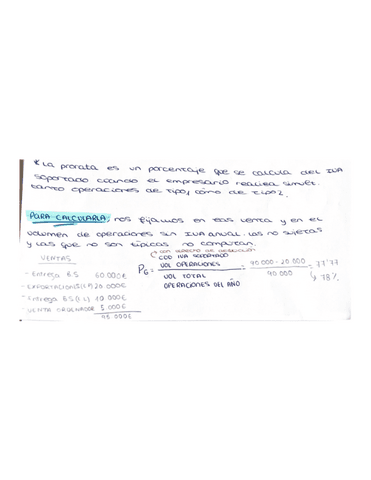 * La prorata es un porcentaje que se calcula del IVA
soportado cuando el empresario realiza simult.
tanto operaciones de tipo1 cómo de tipo2.
PARA CALCULARLA, nos fijamos en las venta y en el
volumen de operaciones sin IVA anual. Las no sujetas
y las que no son típicas no computan.
VENTAS
- Entrega B.S 60.000€
- EXPORTACIONES 20.000€
- Entrega B.S 10.000€
- VENTA ORDENADOR 5.000€
95.000€
con derecho de deducción
IVA SOPORTADO
PG = VOL OPERACIONES / VOL TOTAL OPERACIONES DEL AÑO = 90.000 - 20.000 / 90.000 = 77'77
↳ 78%